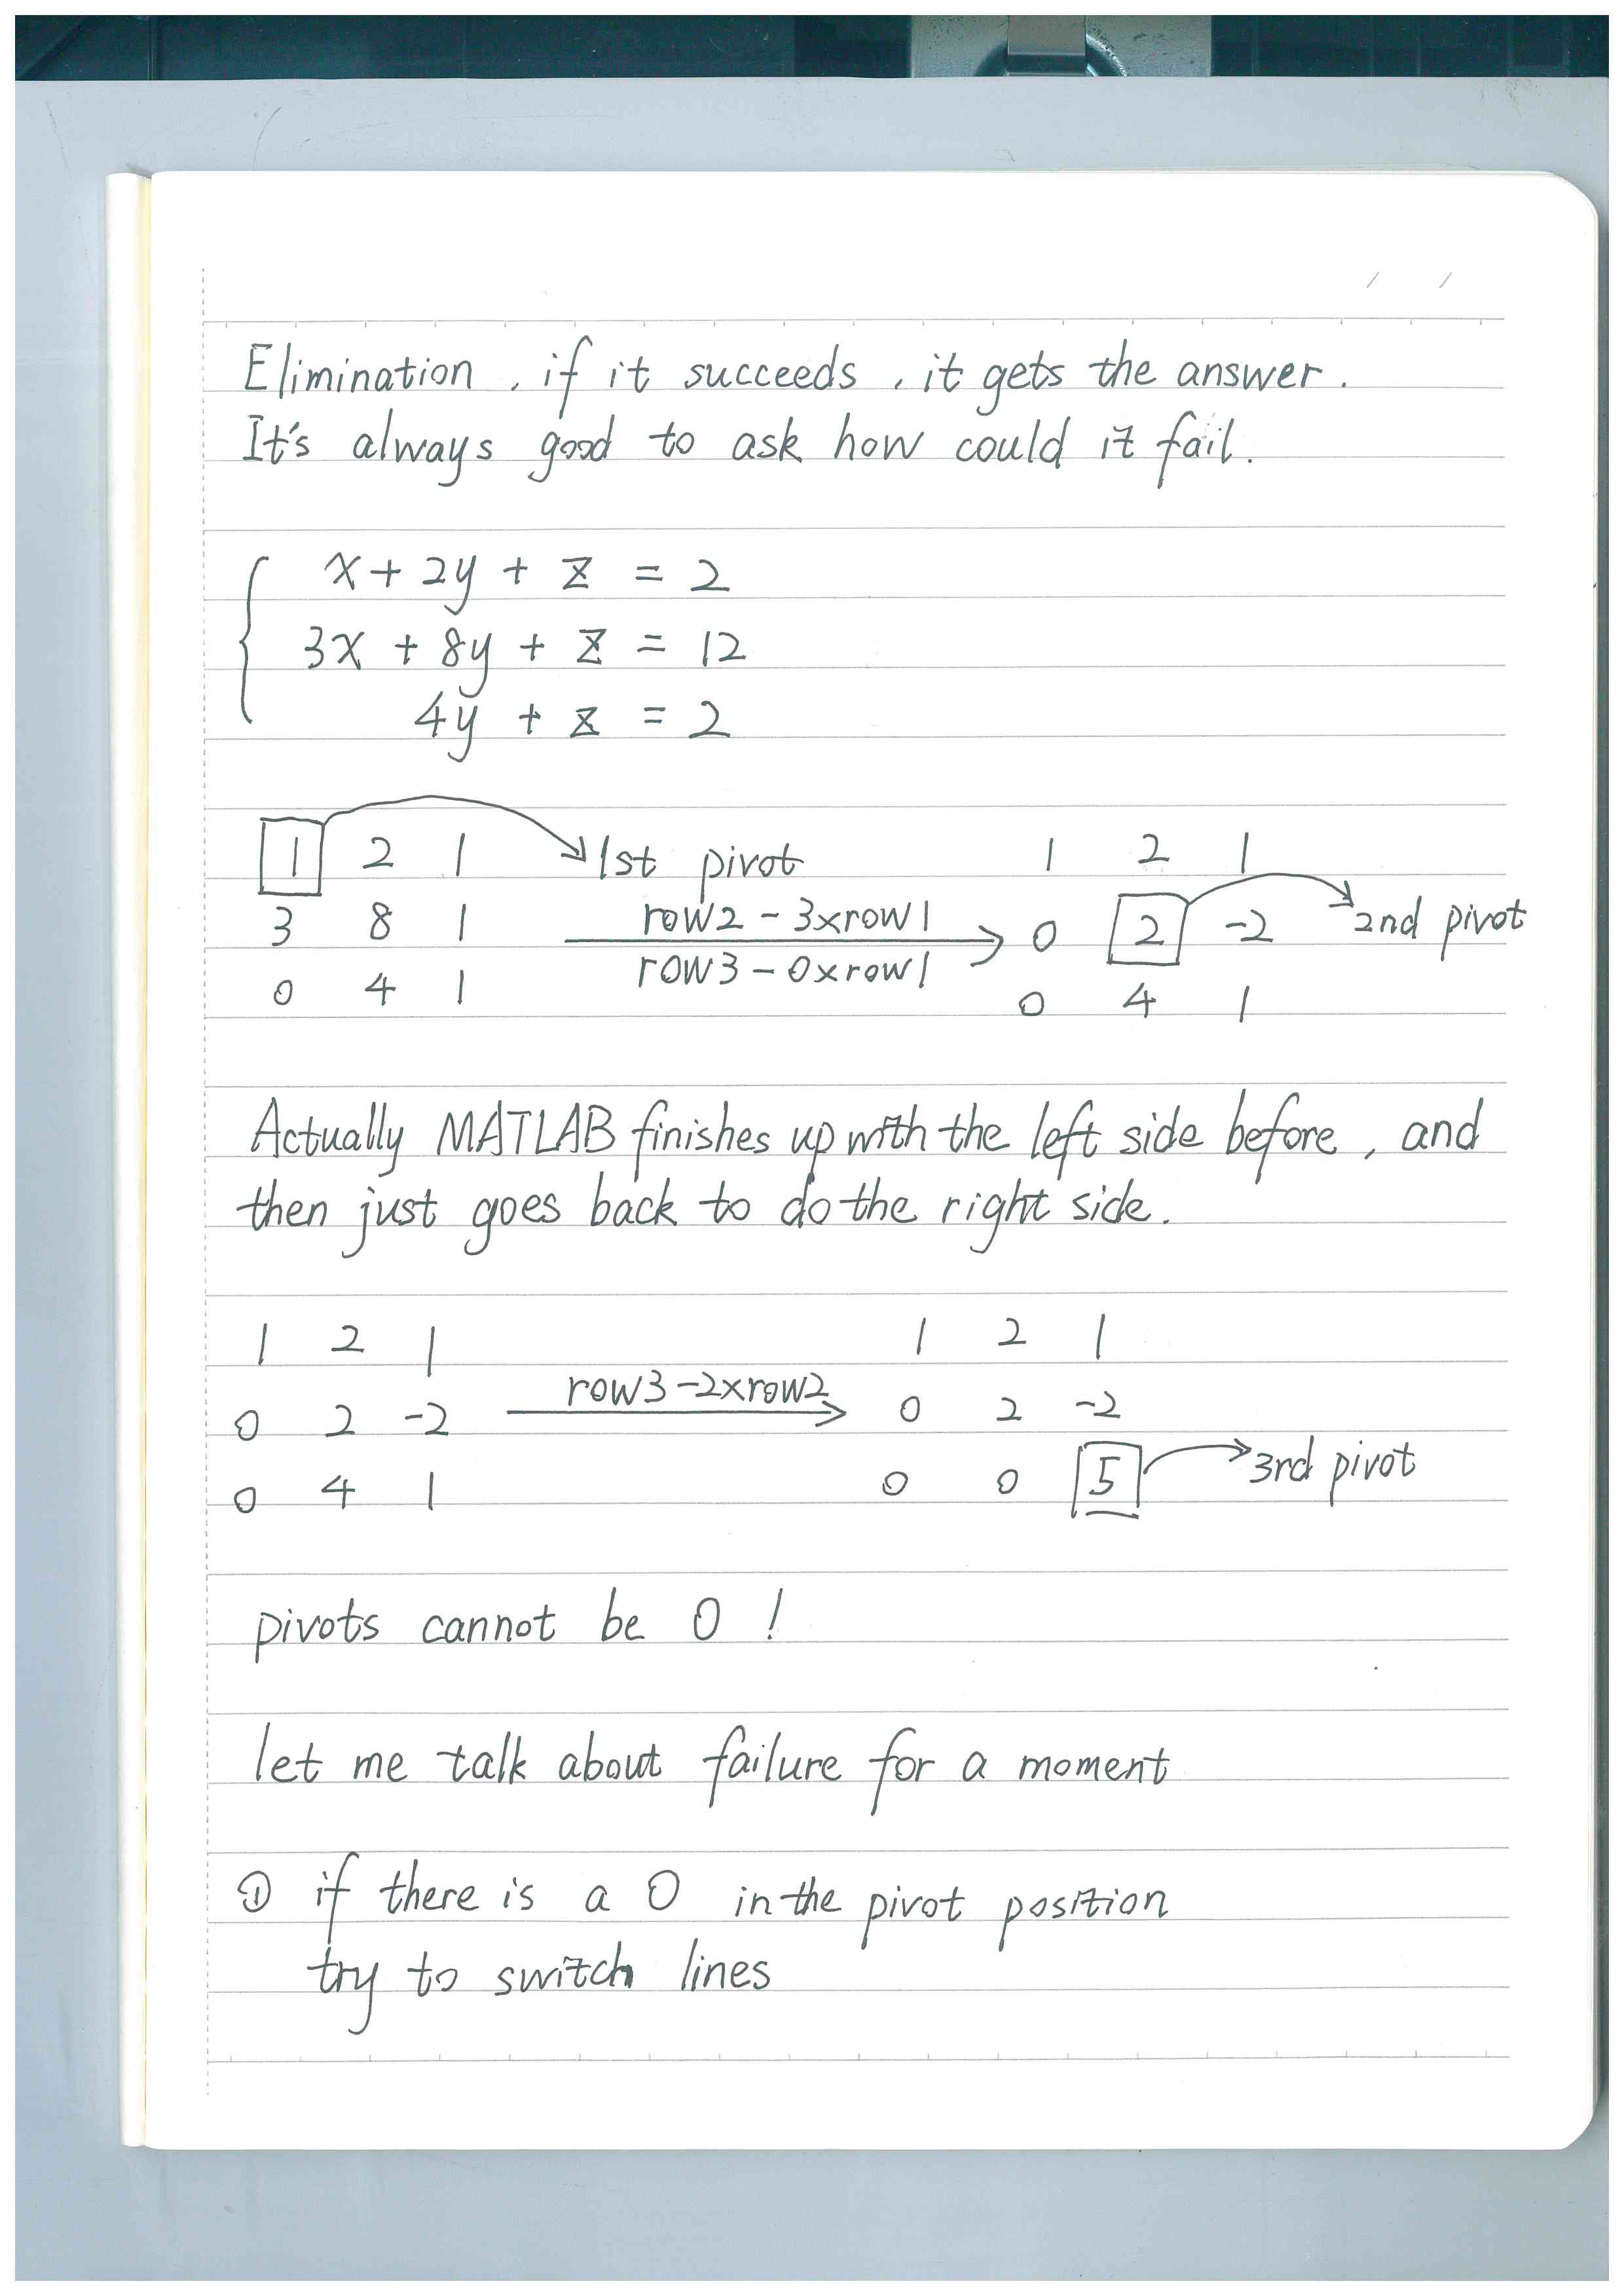 Elimination, if it succeeds, it gets the answer.
It's always good to ask how could it fail.
x + 2y + z = 2
3x + 8y + z = 12
4y + z = 2
1 2 1 1st pivot 1 2 1
3 8 1 row2 - 3xrow1 0 2 -2 2nd pivot
row3 - 0xrow1
0 4 1 0 4 1
Actually MATLAB finishes up with the left side before, and
then just goes back to do the right side.
1 2 1 1 2 1
0 2 -2 row3-2xrow2 0 2 -2
0 4 1 0 0 5 3rd pivot
pivots cannot be 0 !
let me talk about failure for a moment
① if there is a 0 in the pivot position
try to switch lines